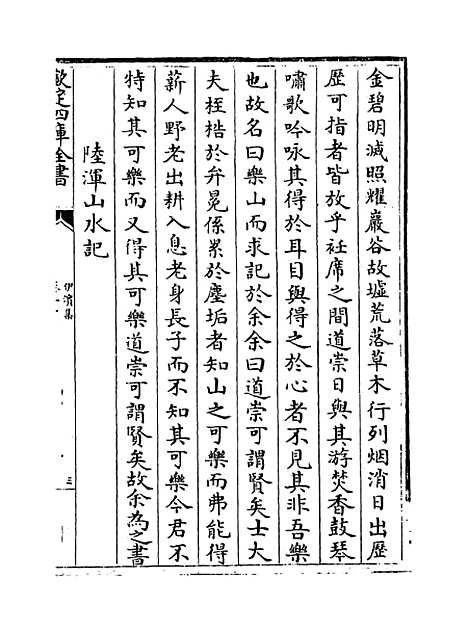 金碧明滅照耀巖谷故墟荒落草木行列烟消日出歷
歷可指者皆故乎衽席之間道崇日與其游焚香鼓琴
嘯歌吟咏其得於耳目與得之於心者不見其非吾樂
也故名曰樂山而求記於余余曰道崇可謂賢矣士大
夫桎梏於弁冕係累於塵垢者知山之可樂而弗能得
薪人野老出耕入息老身長子而不知其可樂今君不
特知其可樂而又得其可樂道崇可謂賢矣故余為之書
陸渾山水記
欽定四庫全書
伊濱集
三